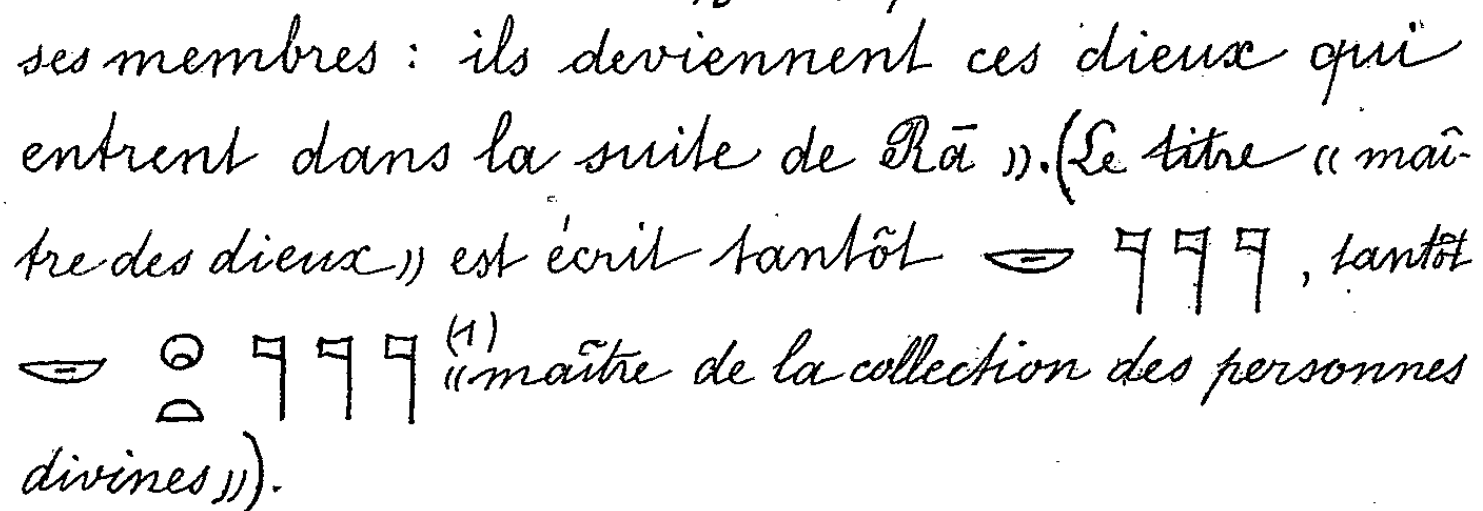 ses membres : ils deviennent ces dieux qui
entrent dans la suite de Rā ». (Le titre « maî-
tre des dieux » est écrit tantôt 𓎟 𓊹𓊹𓊹, tantôt
𓎟 𓐍𓏏 𓊹𓊹𓊹 (1) « maître de la collection des personnes
divines »).